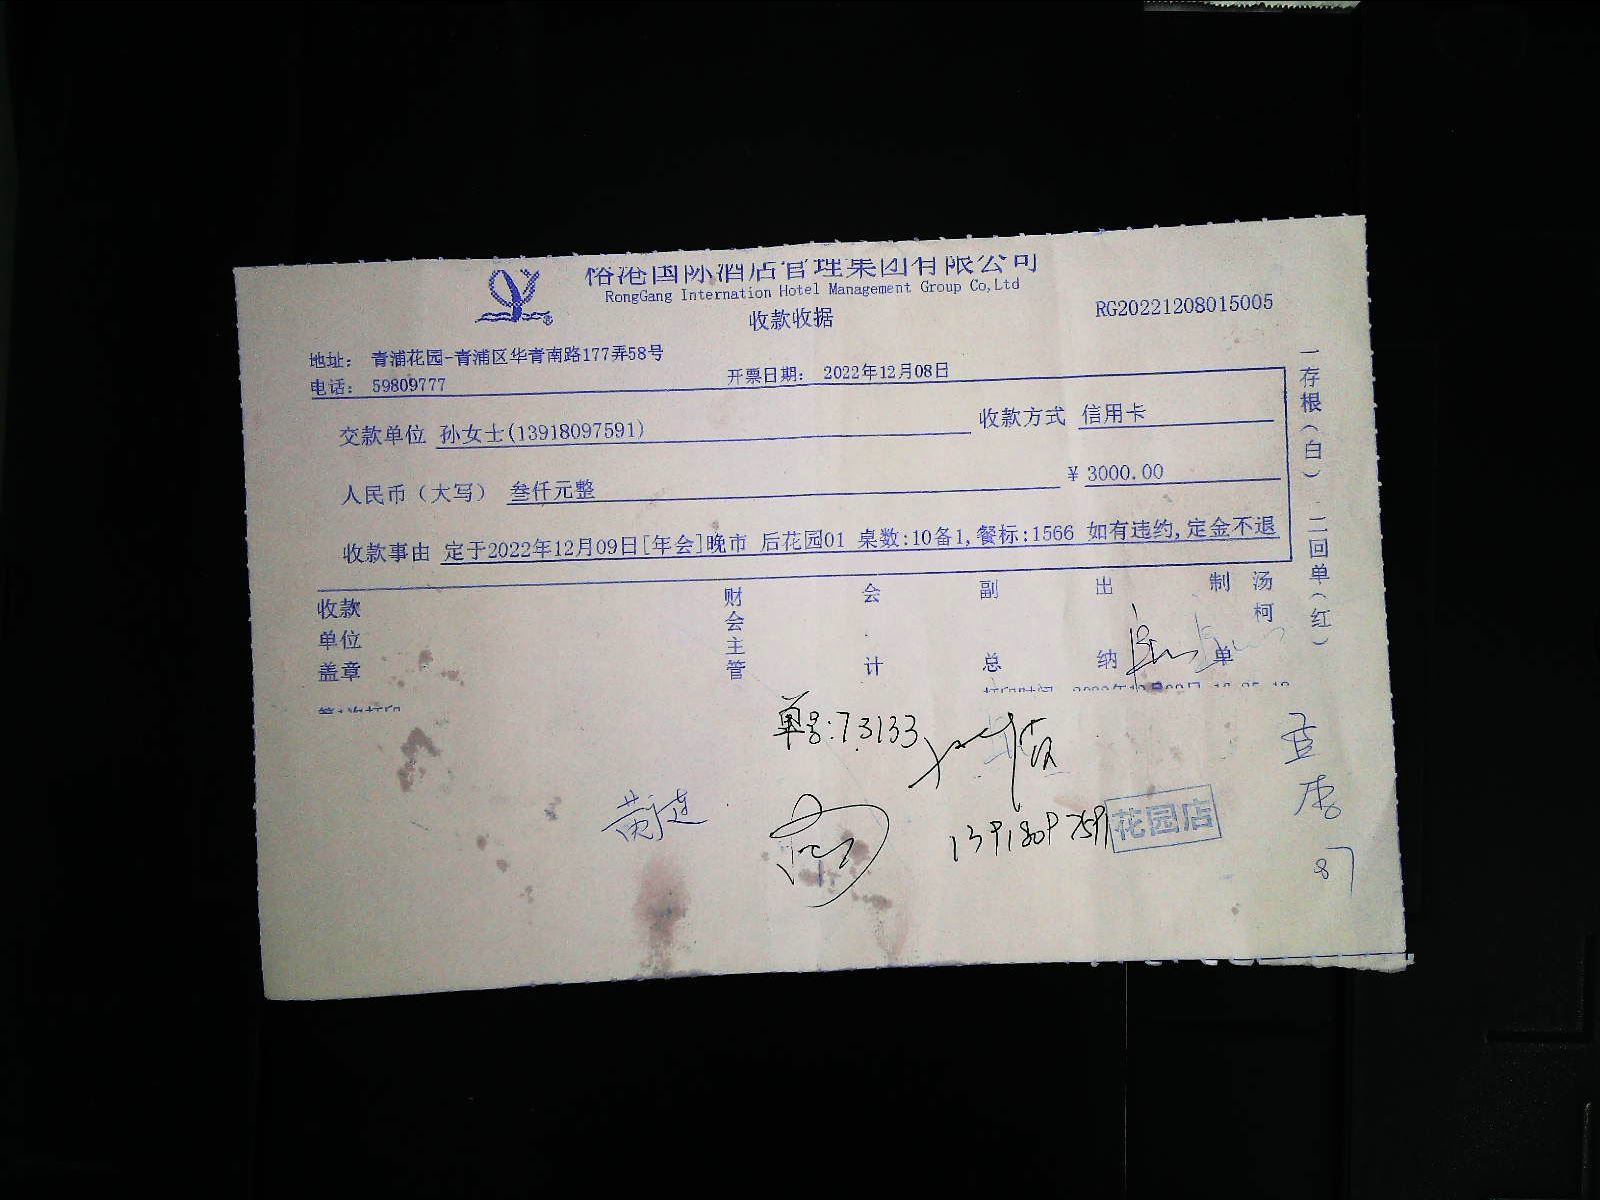 国际酒店管理集团有限公司
RongGang Internation Hotel Management Group Co,Ltd
收款收据
RG20221208015005
地址： 青浦花园-青浦区华青南路177弄58号
电话： 59809777
开票日期： 2022年12月08日
交款单位 孙女士(13918097591)
收款方式 信用卡
人民币（大写） 叁仟元整
¥ 3000.00
收款事由 定于2022年12月09日[年会]晚市 后花园01 桌数:10备1,餐标:1566 如有违约,定金不退
一存根（白） 二回单（红）
收款单位盖章
财会主管
会计
副总
出纳
制单
汤柯
单号:73133
13918097591
花园店
87